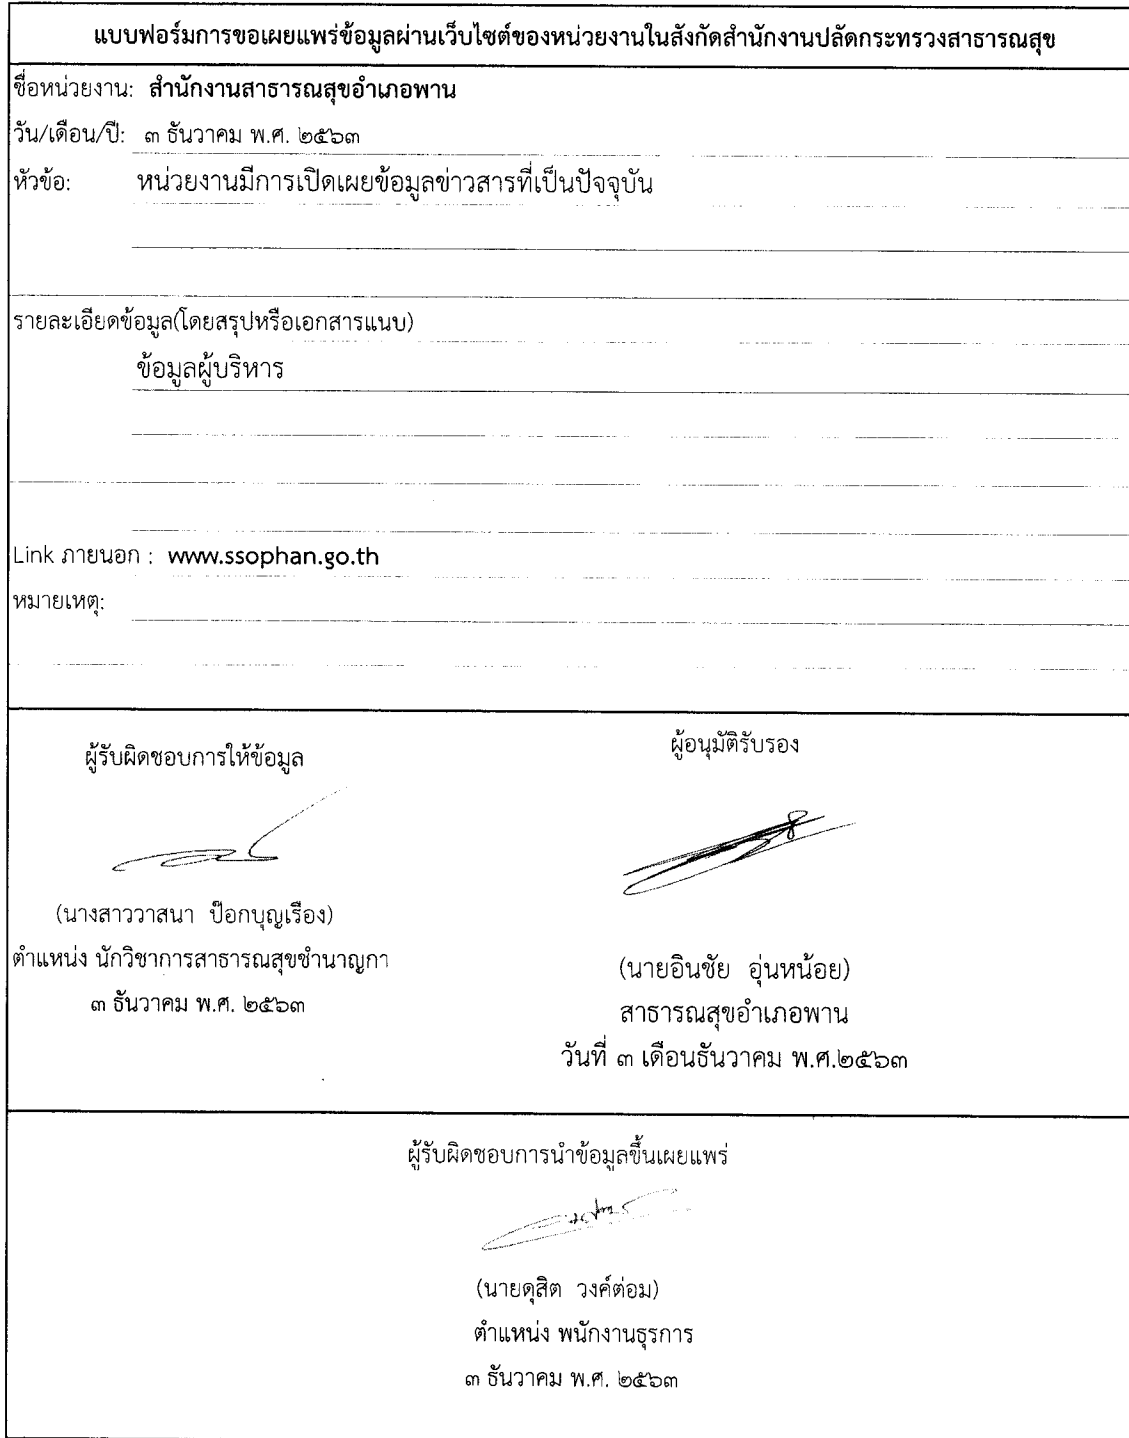 แบบฟอร์มการขอเผยแพร่ข้อมูลผ่านเว็บไซต์ของหน่วยงานในสังกัดสำนักงานปลัดกระทรวงสาธารณสุข
ชื่อหน่วยงาน: สำนักงานสาธารณสุขอำเภอพาน
วัน/เดือน/ปี: ๓ ธันวาคม พ.ศ. ๒๕๖๓
หัวข้อ: หน่วยงานมีการเปิดเผยข้อมูลข่าวสารที่เป็นปัจจุบัน
รายละเอียดข้อมูล(โดยสรุปหรือเอกสารแนบ)
ข้อมูลผู้บริหาร
Link ภายนอก : www.ssophan.go.th
หมายเหตุ:
ผู้รับผิดชอบการให้ข้อมูล
(นางสาววาสนา ป๊อกบุญเรือง)
ตำแหน่ง นักวิชาการสาธารณสุขชำนาญกา
๓ ธันวาคม พ.ศ. ๒๕๖๓
ผู้อนุมัติรับรอง
(นายอินชัย อุ่นหน้อย)
สาธารณสุขอำเภอพาน
วันที่ ๓ เดือนธันวาคม พ.ศ.๒๕๖๓
ผู้รับผิดชอบการนำข้อมูลขึ้นเผยแพร่
(นายดุสิต วงค์ต่อม)
ตำแหน่ง พนักงานธุรการ
๓ ธันวาคม พ.ศ. ๒๕๖๓